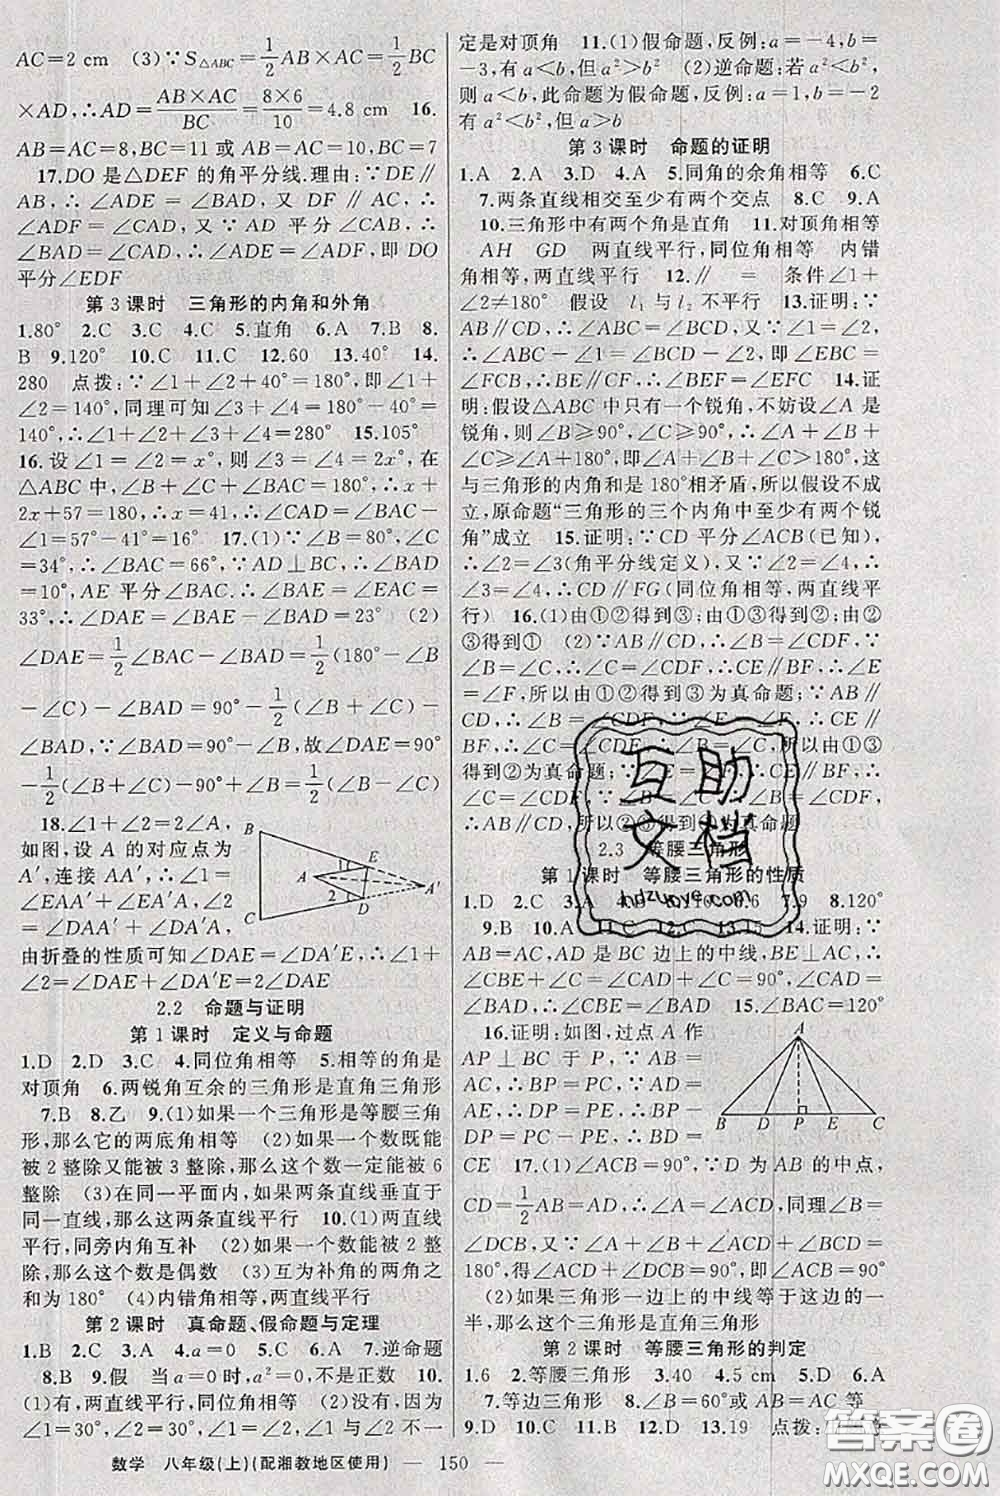 AC=2 cm　(3)∵S△ABC=1/2 AB×AC=1/2 BC
×AD,∴AD=AB×AC/BC=8×6/10=4.8 cm　16.
AB=AC=8,BC=11 或 AB=AC=10,BC=7
17.DO 是△DEF 的角平分线.理由:∵DE∥
AB,∴∠ADE=∠BAD,又 DF∥AC,∴
∠ADF=∠CAD,又∵AD 平分∠CAB,∴
∠BAD=∠CAD,∴∠ADE=∠ADF,即 DO
平分∠EDF
第 3 课时　三角形的内角和外角
1.80°　2.C　3.C　4.C　5.直角　6.A　7.B　8.
B　9.120°　10.C　11.C　12.60　13.40°　14.
280　点拨:∵∠1+∠2+40°=180°,即∠1+
∠2=140°,同理可知∠3+∠4=180°-40°=
140°,∴∠1+∠2+∠3+∠4=280°　15.105°
16.设∠1=∠2=x°,则∠3=∠4=2x°,在
△ABC 中,∠B+∠C+∠BAC=180°,∴x+
2x+57=180,∴x=41,∴∠CAD=∠BAC-
∠1=57°-41°=16°　17.(1)∵∠B=80°,∠C
=34°,∴∠BAC=66°,∵AD⊥BC,∴∠BAD
=10°,AE 平分∠BAC,∴∠BAE=∠EAC=
33°,∴∠DAE=∠BAE-∠BAD=23°　(2)
∠DAE=1/2∠BAC-∠BAD=1/2(180°-∠B
-∠C)-∠BAD=90°-1/2(∠B+∠C)-
∠BAD,∵∠BAD=90°-∠B,故∠DAE=90°-
1/2(∠B+∠C)-(90°-∠B)=1/2(∠B-∠C)
18.∠1+∠2=2∠A,
如图,设 A 的对应点为
A′,连接 AA′,∴∠1=
∠EAA′+∠DA′E,∠2
=∠DAA′+∠DA′E,
由折叠的性质可知∠DAE=∠DA′E,∴∠1+
∠2=∠DAE+∠DA′E=2∠DAE
B
C
A
E
D
A′
1
2
2.2　命题与证明
第 1 课时　定义与命题
1.D　2.D　3.C　4.同位角相等　5.相等的角是
对顶角　6.两锐角互余的三角形是直角三角形
7.B　8.乙　9.(1)如果一个三角形是等腰三角
形,那么它的两底角相等　(2)如果一个数既能
被 2 整除又能被 3 整除,那么这个数一定能被 6
整除　(3)在同一平面内,如果两条直线垂直于
同一直线,那么这两条直线平行　10.(1)两直线
平行,同旁内角互补　(2)如果一个数能被 2 整
除,那么这个数是偶数　(3)互为补角的两角之
和为 180°　(4)内错角相等,两直线平行
第 2 课时　真命题、假命题与定理
1.B　2.C　3.A　4.a=0　5.C　6.C　7.逆命题
8.B　9.假　当 a=0 时,a²=0,不是正数　10.
(1)有,两直线平行,同位角相等　(2)没有,因为
∠1=30°,∠2=30°,∠1=∠2,∠1 与∠2 不一
定是对顶角　11.(1)假命题,反例:a=-4,b=
-3,有 a<b,但 a²>b²　(2)逆命题:若 a²<b²,
则 a<b,此命题为假命题,反例:a=1,b=-2
有 a²<b²,但 a>b
第 3 课时　命题的证明
1.A　2.A　3.D　4.A　5.同角的余角相等　6.C
7.两条直线相交至少有两个交点　8.C　9.A
10.三角形中有两个角是直角　11.对顶角相等
AH　GD　两直线平行,同位角相等　内错
角相等,两直线平行　12.∥　=　条件∠1+
∠2≠180°　假设　l₁ 与 l₂ 不平行　13.证明:∵
AB∥CD,∴∠ABC=∠BCD,又∵∠1=∠2,
∴∠ABC-∠1=∠BCD-∠2,即∠EBC=
∠FCB,∴BE∥CF,∴∠BEF=∠EFC　14.证
明:假设△ABC 中只有一个锐角,不妨设∠A 是
锐角,则∠B≥90°,∠C≥90°,∴∠A+∠B+
∠C≥∠A+180°,即∠A+∠B+∠C>180°,这
与三角形的内角和是 180°相矛盾,所以假设不成
立,原命题“三角形的三个内角中至少有两个锐
角”成立　15.证明:∵CD 平分∠ACB(已知),
∴∠2=∠3(角平分线定义),又∵∠2=∠1,
∴∠1=∠3,∴CD∥FG(同位角相等,两直线平
行)　16.(1)由①②得到③;由①③得到②;由②
③得到①　(2)∵AB∥CD,∴∠B=∠CDF,∵
∠B=∠C,∴∠C=∠CDF,∴CE∥BF,∴∠E
=∠F,所以由①②得到③为真命题;∵AB∥
CD,∴∠B=∠CDF,∵∠E=∠F,∴CE∥
BF,∴∠C=∠CDF,∴∠B=∠C,所以由①③
得到②为真命题;∵∠E=∠F,∴CE∥BF,∴
∠C=∠CDF,∵∠B=∠C,∴∠B=∠CDF,
∴AB∥CD,所以由②③得到①为真命题
2.3　等腰三角形
第 1 课时　等腰三角形的性质
1.D　2.C　3.A　6.6　7.9　8.120°
9.B　10.A　11.C　12.C　13.15　14.证明:∵
AB=AC,AD 是 BC 边上的中线,BE⊥AC,∴
∠CBE+∠C=∠CAD+∠C=90°,∴∠CAD=
∠BAD,∴∠CBE=∠BAD　15.∠BAC=120°
16.证明:如图,过点 A 作
AP⊥BC 于 P,∵AB=
AC,∴BP=PC,∵AD=
AE,∴DP=PE,∴BP-
DP=PC-PE,∴BD=
CE　17.(1)∠ACB=90°,∵D 为 AB 的中点,
A
B D P E C
CD=1/2AB,∴∠A=∠ACD,同理∠B=
∠DCB,又∵∠A+∠B+∠ACD+∠DCB=
180°,得∠ACD+∠DCB=90°,即∠ACB=90°
(2)如果三角形一边上的中线等于这边的一
半,那么这个三角形是直角三角形
第 2 课时　等腰三角形的判定
1.6　2.等腰三角形　3.20　4.5 cm　5.D　6.A
7.等边三角形　8.∠B=60°或 AB=AC 等
9.D　10.C　11.B　12.D　13.19　点拨:
数学　八年级(上)(配湘教地区使用)　— 150 —
互助
文档
hdzuoye.com
答案圈
MXQE.COM